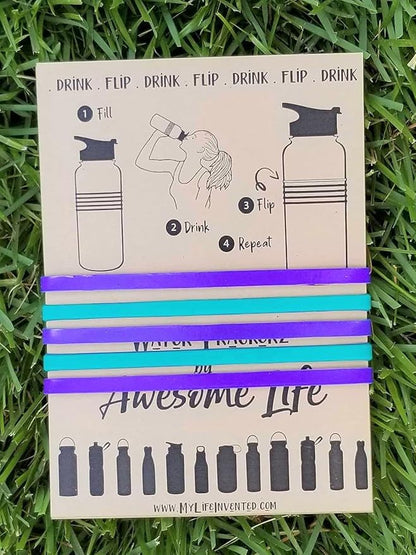 . DRINK . FLIP . DRINK . FLIP . DRINK . FLIP . DRINK
1 Fill
2 Drink
3 Flip
4 Repeat
Water Trackerz
by
Awesome Life
www.MyLifeInvented.com